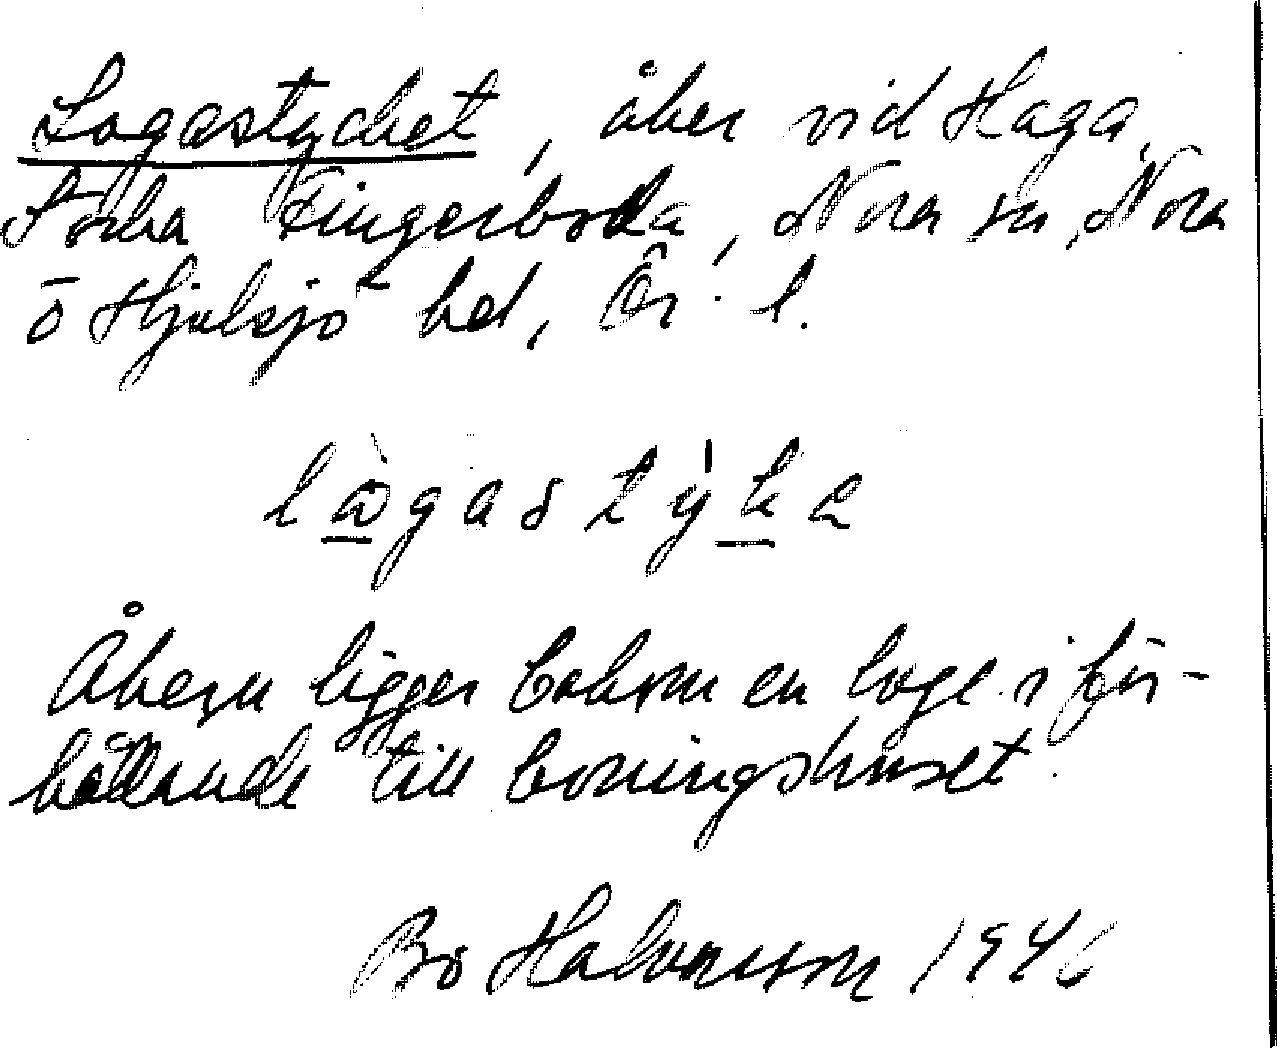 Logastycket, åker vid Haga,
Norra Fingerboda, Nora sn, Nora
o Hjulsjö bd, Ör. l.
lågastyka
Åkern ligger bakom en loge i för-
hållande till boningshuset.
Bo Halvarsson 1946